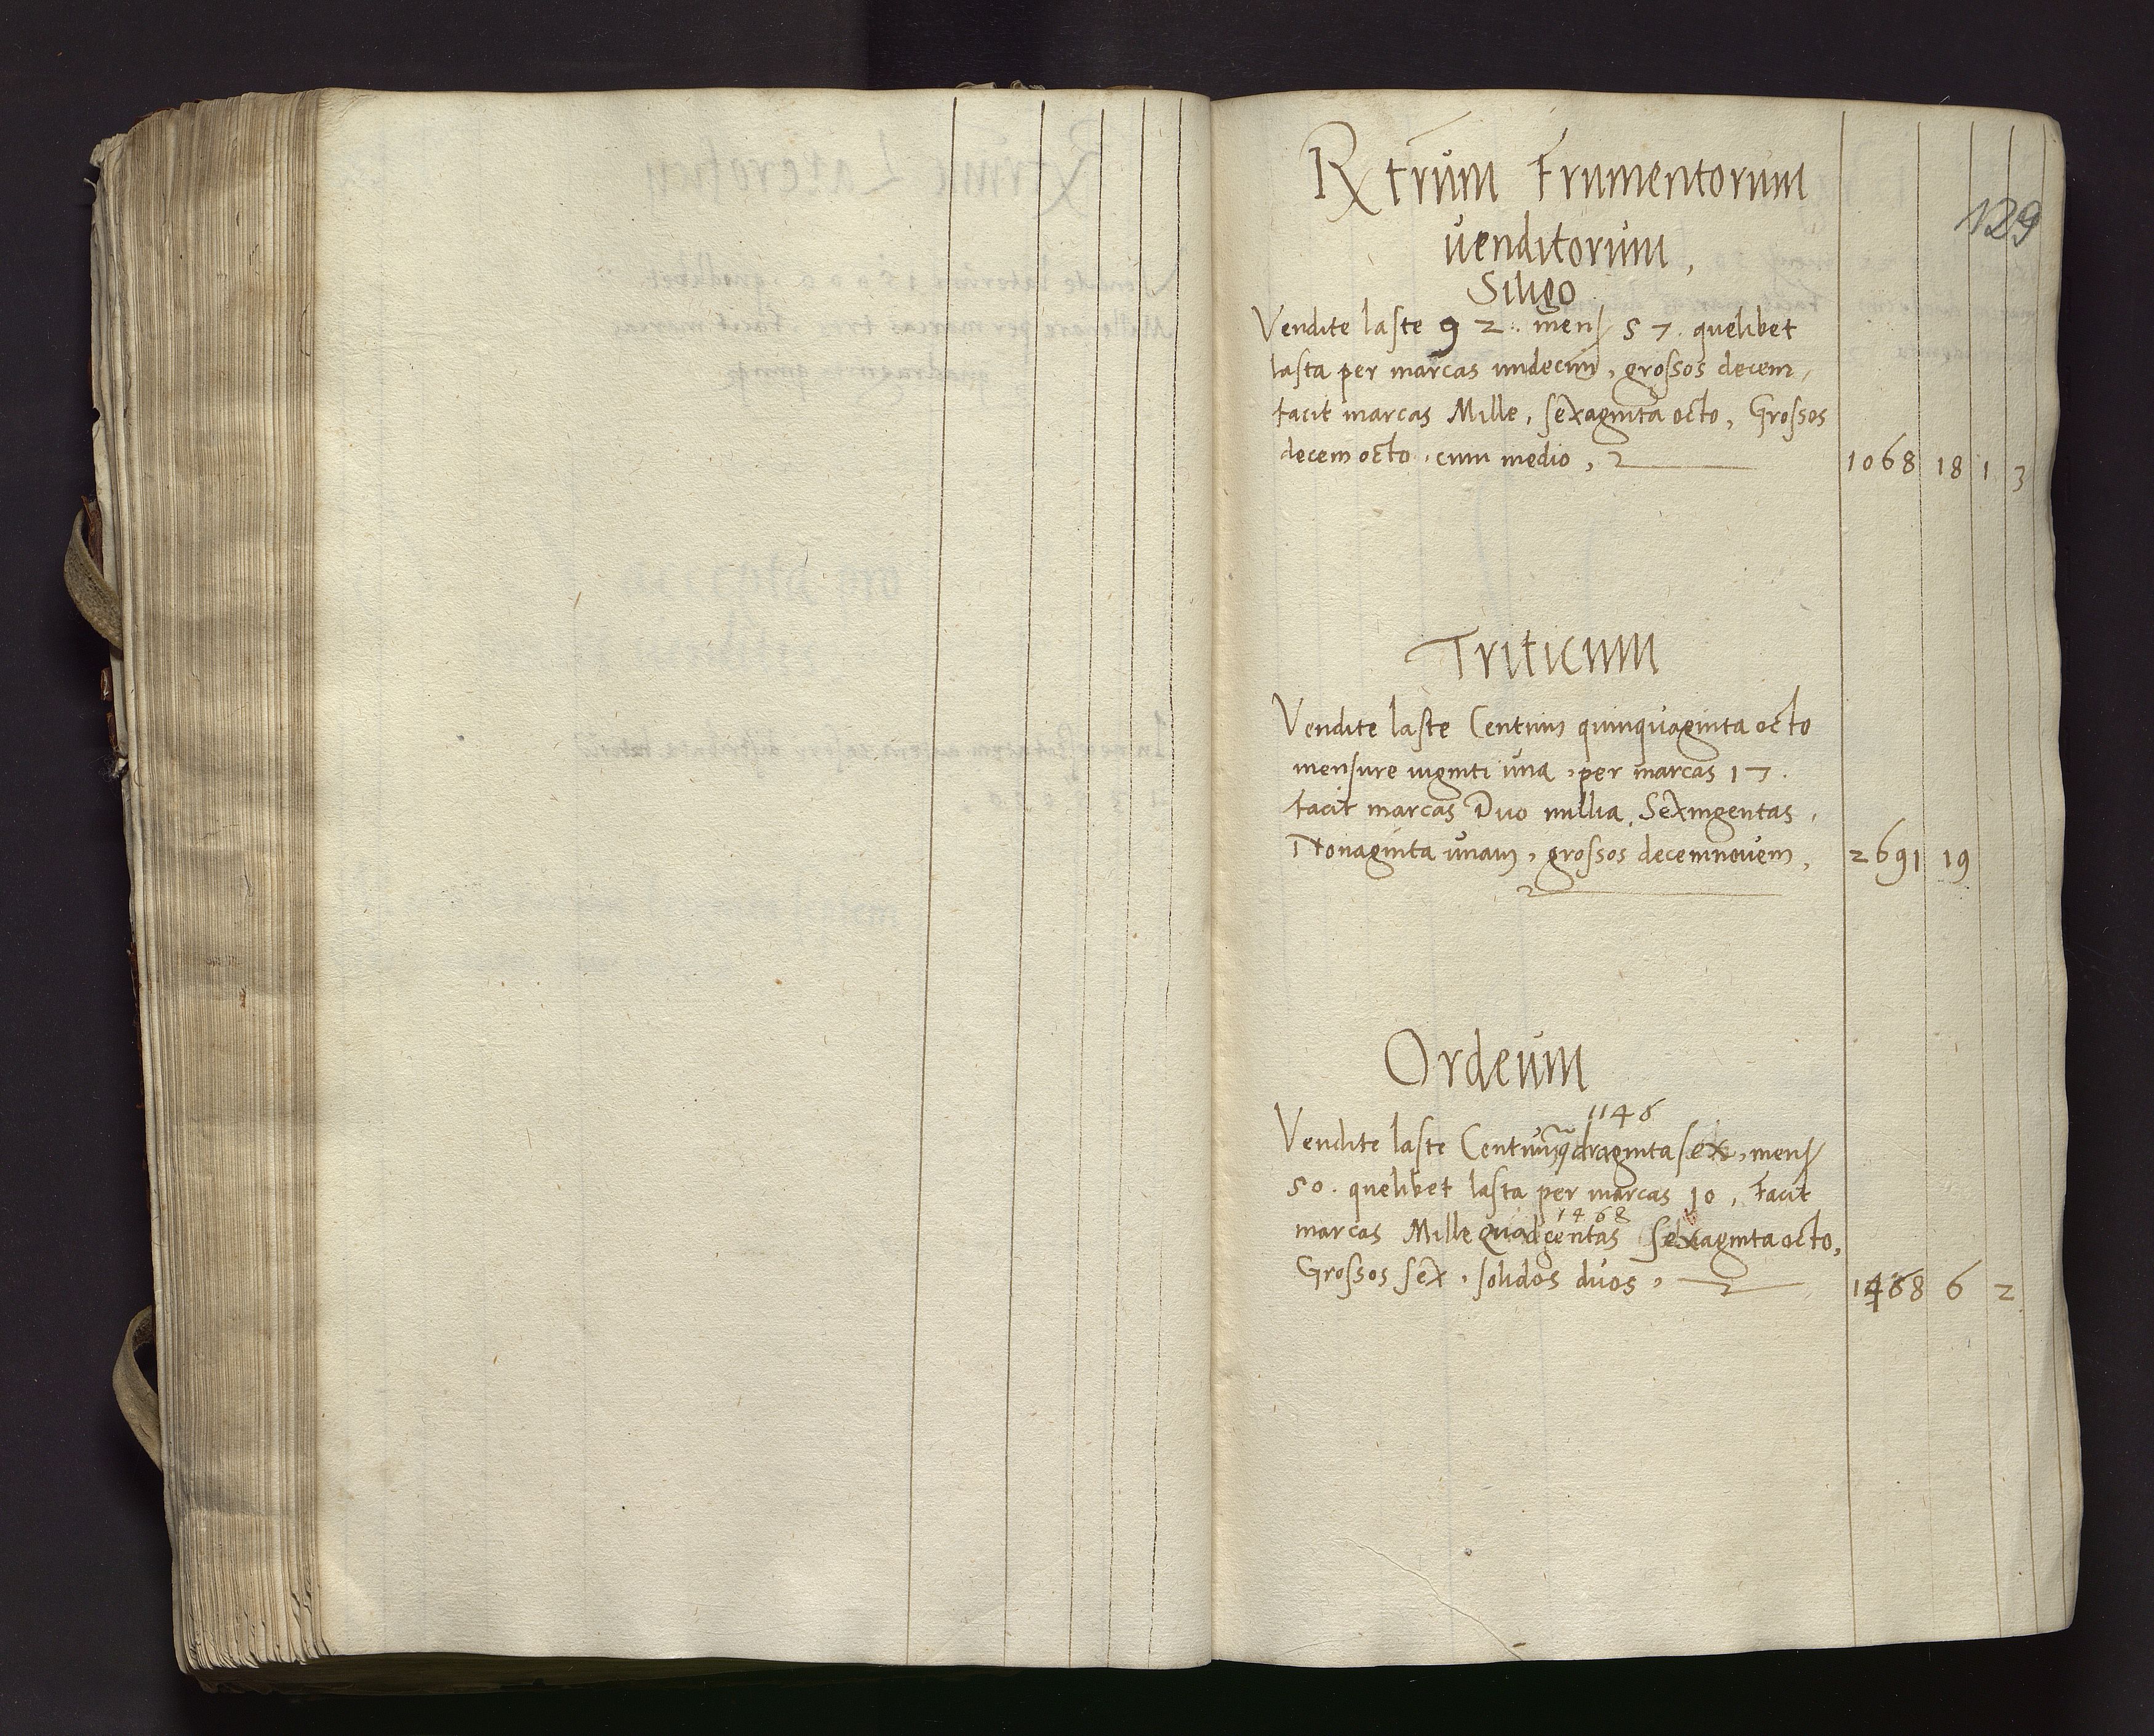 Rxtrum Frumentorum
129
venditorum,
Siligo
Vendite laste 92. mens 57. quelibet
lasta per marcas undecim, grossos decem,
facit marcas Mille, sexaginta octo, Grossos
decem octo, cum medio, 1068 18 1 3
Triticum
Vendite laste Centum quinquaginta octo
mensure viginti una, per marcas 17.
facit marcas Duo millia, Sexingentas,
Nonaginta unam, grossos decemnovem, 2691 19
Ordeum
1146
Vendite laste Centum qdraginta sex, mens
50. quelibet lasta per marcas 10, facit
1468
marcas Mille quadcentas sexaginta octo,
Grossos sex, solidos duos, 1468 6 2